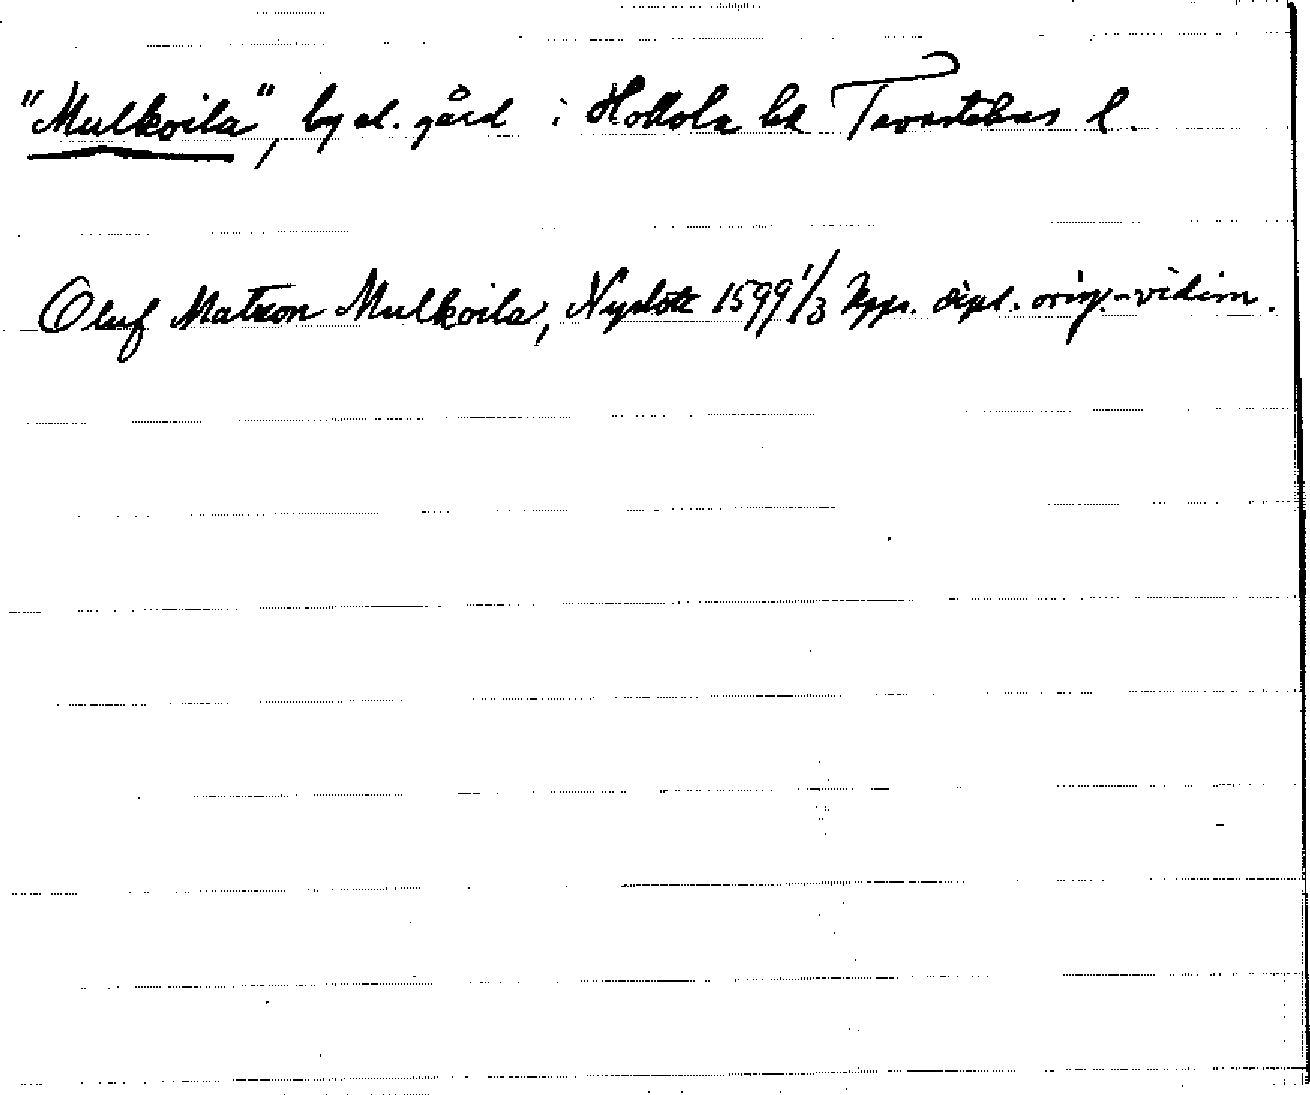 "Mulkoila", by el. gård i Hollola hd Tavastehus l.
Oluf Matson Mulkoila, Nyslott 1599 1/3 Upps. dipl. orig.-vidim.